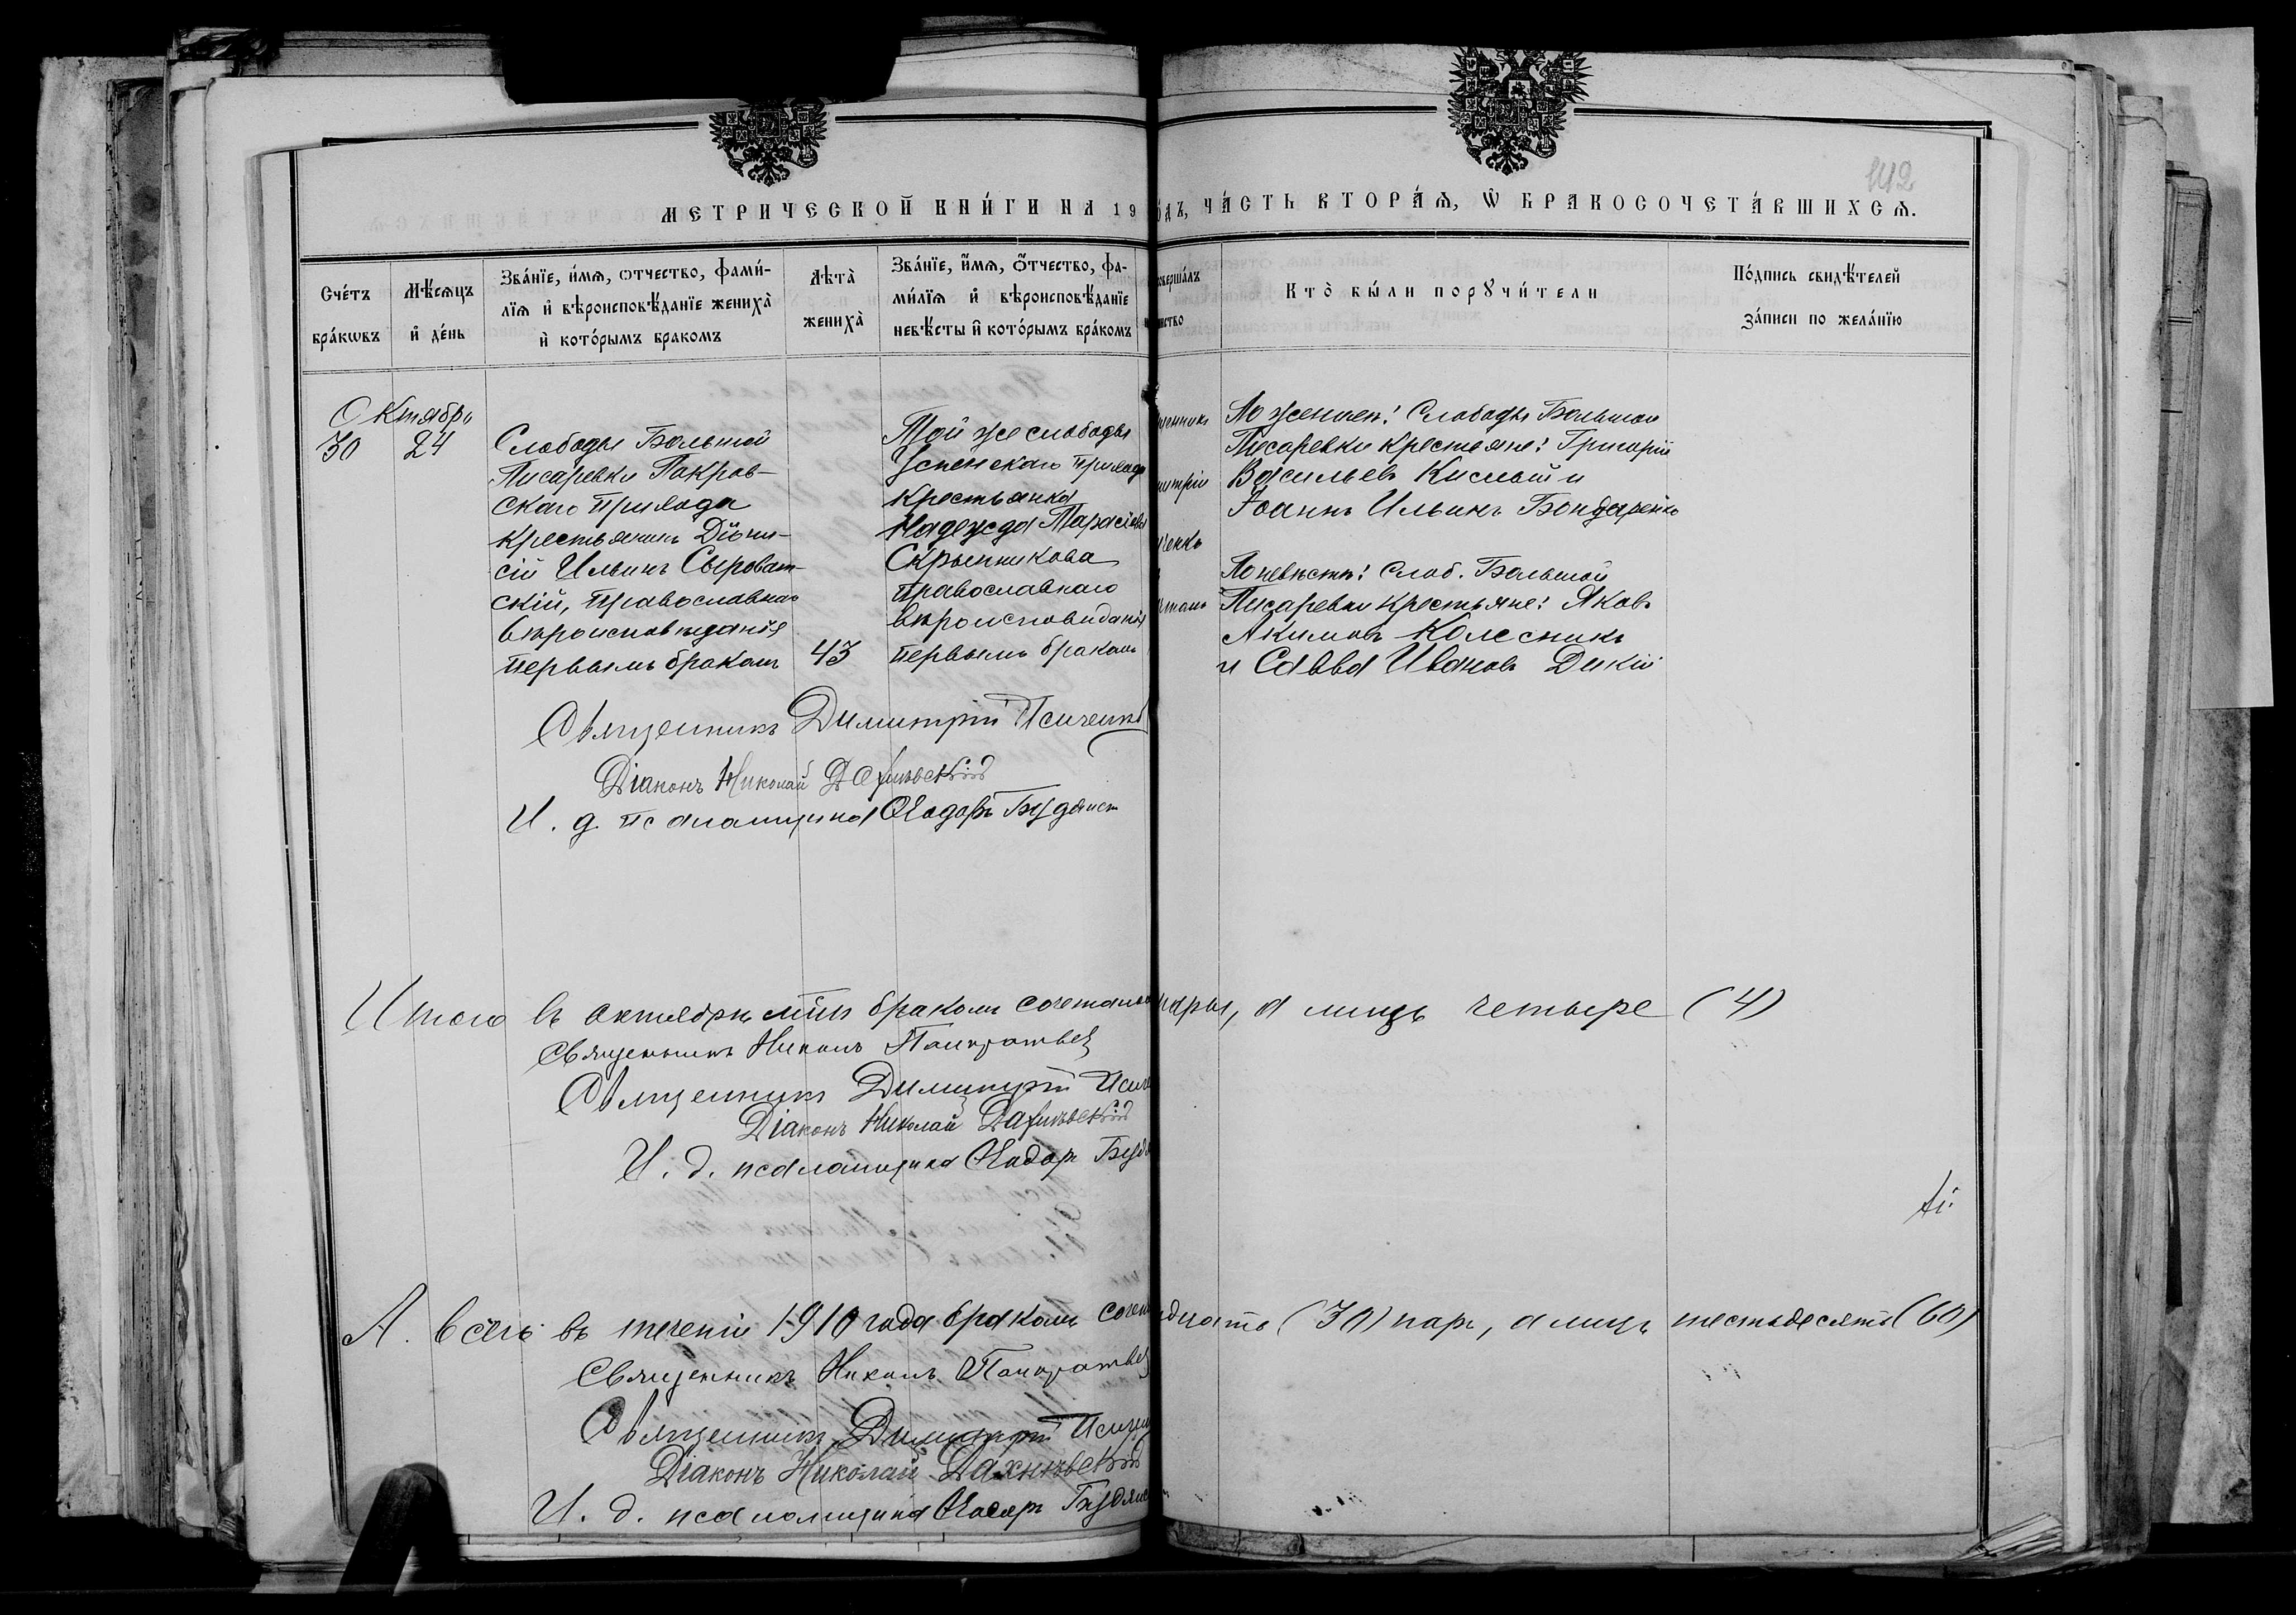 142
МЕТРИЧЕСКОЙ КНИ́ГИ НА 19
ЧА́СТЬ ВТОРА́Ѧ, Ѡ БРАКОСОЧЕТА́ВШИХСѦ.
Сче́тъ бра́кѡвъ
Мѣ́сѧцъ и҆ де́нь
Зва́нїе, и́мѧ, ѻтчество, фами́-
лїѧ и҆ вѣроисповѣ́данїе жениха̀
и҆ кото́рымъ бракомъ
Лѣта̀ жениха̀
Зва́нїе, и҆́мѧ, ѻ҆́тчество, фа-
ми́лїѧ и҆ вѣроисповѣ́данїе
невѣ́сты и҆ кото́рымъ бра́комъ
Кто̀ бы́ли порꙋчи́тели
По́дпись свидѣ́телей
за́писи по жела́нїю
Октябрь
30 24
Слободы Большой
Писаревки Покров-
скаго прихода
крестьянинъ Діони-
сій Ильинъ Сыроват-
скій, православнаго
вѣроисповѣданія
первымъ бракомъ
43
Той же слободы
Успенскаго прихода
крестьянка
Надежда Тарасіева
Скрынникова
православнаго
вѣроисповиданія
первымъ бракомъ
По женихѣ: Слободы Большой
Писаревки крестьяне: Григорій
Васильевъ Кислый и
Іоаннъ Ильинъ Бондаренко
По невѣстѣ: Слоб. Большой
Писаревки крестьяне: Яковъ
Акимовъ Колесникъ
и Савва Ивановъ Дикій
Священникъ Димитрій Исиченко
Діаконъ Николай Дахніевскій
И. д. псаломщика Ѳеодоръ
Итого въ октябрѣ мцѣ бракомъ сочеталось пары, а лицъ четыре (4)
Священникъ Николъ
Священникъ Димитрій
Діаконъ Николай Дахніевскій
И. д. псаломщика Ѳеодоръ
А всего въ теченіи 1910 года бракомъ (30) паръ, а лицъ шестьдесятъ (60)
Священникъ Николъ
Священникъ Димитрій
Діаконъ Николай Дахніевскій
И. д. псаломщика Ѳеодоръ